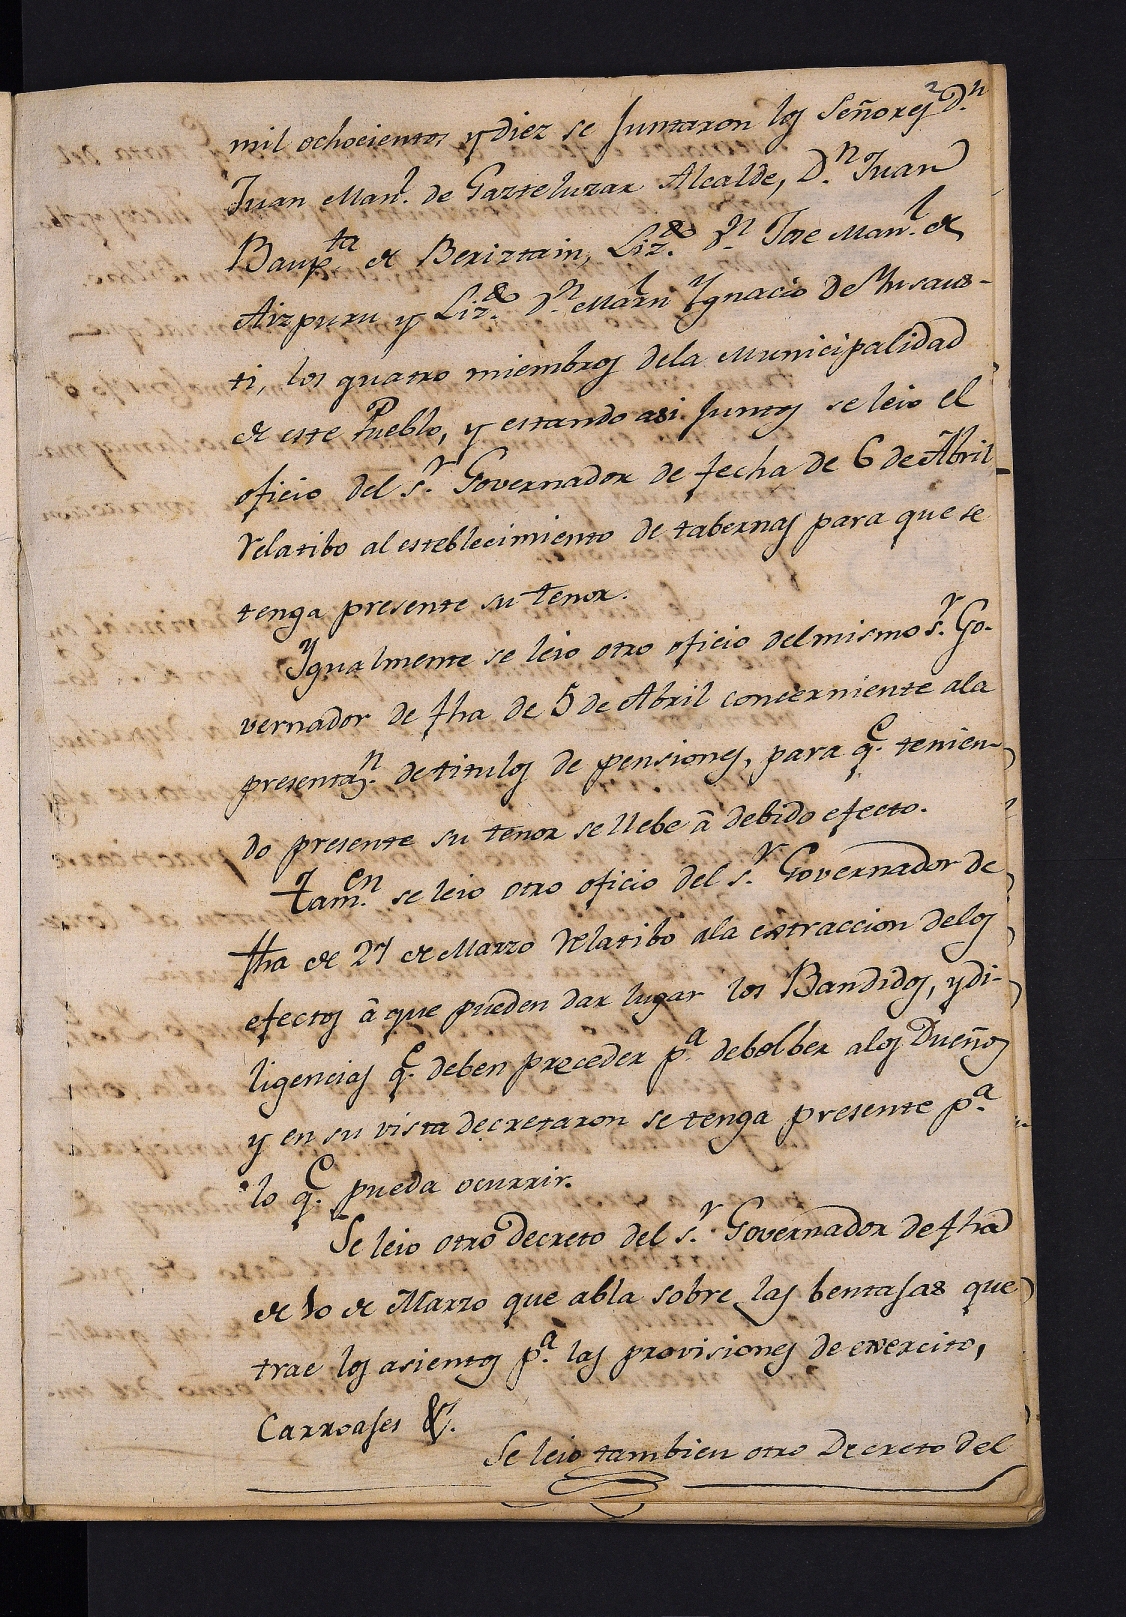 2
mil ochocientos y diez se juntaron los Señores Dn
Juan Manl. de Gaztelurar Alcalde, D.n Juan
Baupta de Beriztain, Lizdo. Dn. Jose Manl. de
Aizpuru y Lizdo. Dn. Martn Ygnacio de Musaus-
ti, los quatro miembros dela Municipalidad
de este Pueblo, y estando asi juntos se leio el
oficio del Sr. Governador de fecha de 6 de Abril
relatibo al esteblecimiento de tabernas para que se
tenga presente su tenor.
Ygualmente se leio otro oficio del mismo Sr. Go-
vernador de fha de 5 de Abril concerniente ala
presentan. de titulos de pensiones, para qe. tenien-
do presente su tenor se llebe â debido efecto.
Tamen. se leio otro oficio del Sr. Governador de
fha de 27 de Marzo relatibo ala extraccion delos
efectos â que pueden dar lugar los Bandidos, y di-
ligencias qe. deben preceder pa. debolber alos Dueños
y en su vista decretaron se tenga presente pa.
lo qe. pueda ocurrir.
Se leio otro Decreto del Sr. Governador de fha
de 10 de Marzo que abla sobre las bentajas que
trae los asientos pa. las provisiones de exercito,
Carroajes &.
Se leio tambien otro Decreto del